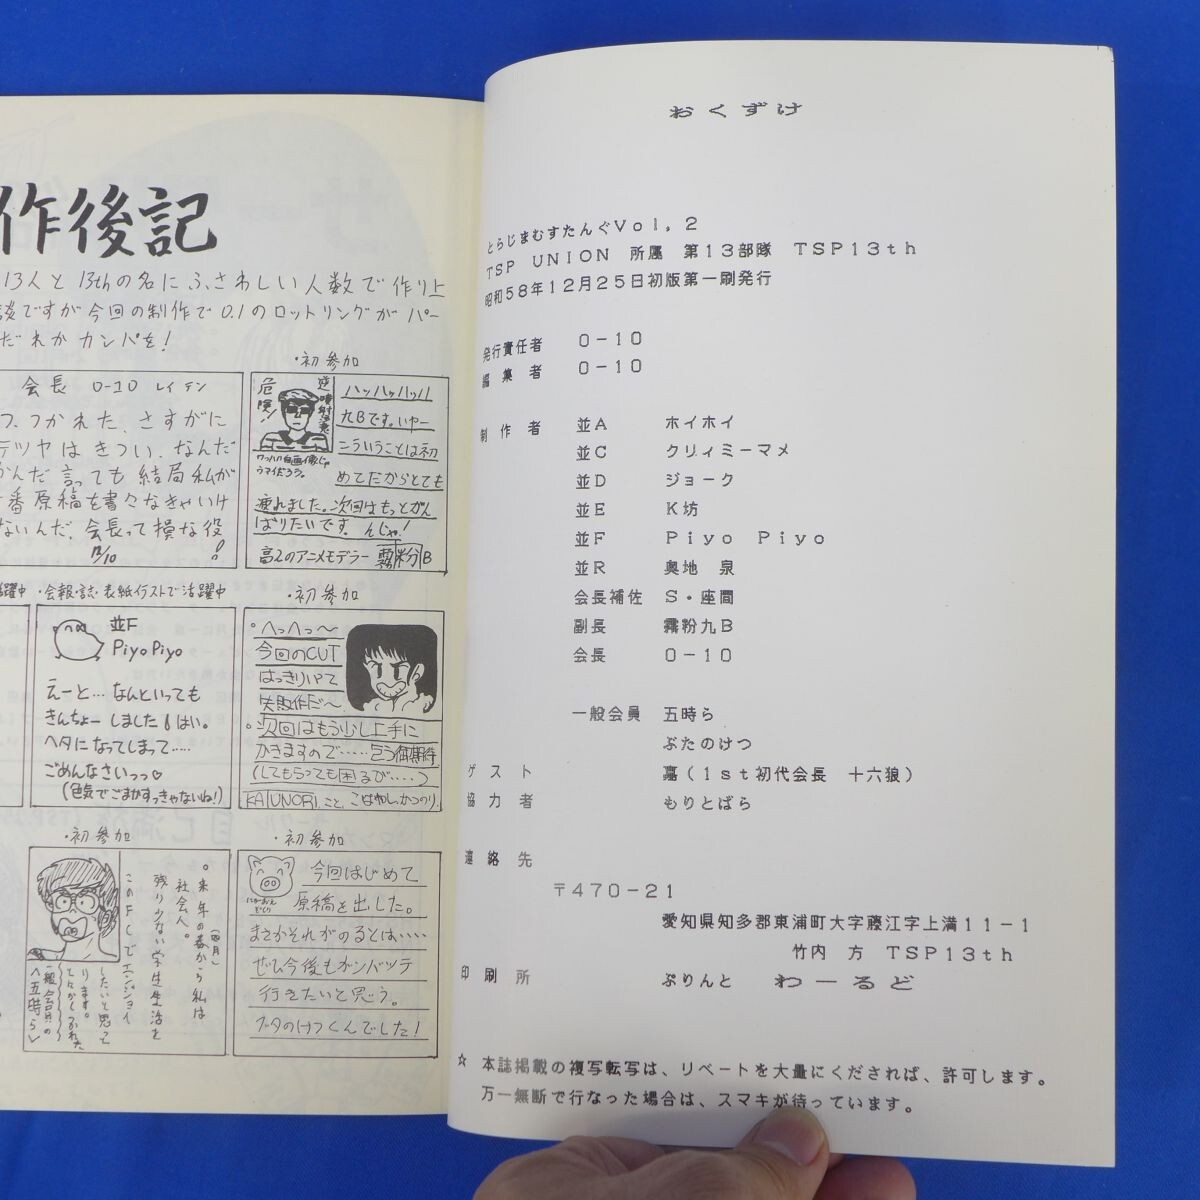 作後記
13人と13thの名にふさわしい人数で作り上
談ですが今回の制作で0.1のロットリングがパー
だれかカンパを!
会長 0-10 レイテン
つ、つかれた、さすがに
テツヤはきつい、なんだ
かんだ言っても結局私が
番原稿を書々なきゃいけ
ないんだ、会長って損な役
12/10 !
・初参加
危険!
ハッハッハッハ
九Bです。いやー
こういうことは初
めてだからとても
疲れました。次回はもっとがん
ばりたいです。んじゃ!
高えのアニメモデラー 霧粉九B
・会報・誌・表紙イラストで活躍中
並F
Piyo Piyo
えーと…なんといっても
きんちょーしました!はい。
ヘタになってしまって……
ごめんなさいっっ♡
(色気でごまかすっきゃないね!)
・初参加
。へっへっ〜
今回のCUT
はっきりいって
失敗作だ〜
。次回はもう少し上手に
かきますので……乞う御期待
(してもらっても困るぴ……)
・初参加
。来年の春から私は
(四月)
社会人。
残り少ない学生生活を
このFCでエンジョイ
したいと思って
一般会員の
<五時ら>
・初参加
今回はじめて
原稿を出した。
まさかそれがのるとは……
ぜひ今後もガンバッテ
行きたいと思う。
ブタのけつくんでした!
おくずけ
とらじまむすたんぐVol,2
TSP UNION 所属 第13部隊 TSP13th
昭和58年12月25日初版第一刷発行
発行責任者 0-10
編集者 0-10
制作者 並A ホイホイ
並C クリィミーマメ
並D ジョーク
並E K坊
並F Piyo Piyo
並R 奥地 泉
会長補佐 S・座間
副長 霧粉九B
会長 0-10
一般会員 五時ら
ぶたのけつ
ゲスト 嚞(1st初代会長 十六狼)
協力者 もりとばら
連絡先
〒470-21
愛知県知多郡東浦町大字藤江字上満11-1
竹内 方 TSP13th
印刷所 ぷりんと わーるど
☆ 本誌掲載の複写転写は、リベートを大量にくだされば、許可します。
万一無断で行なった場合は、スマキが待っています。